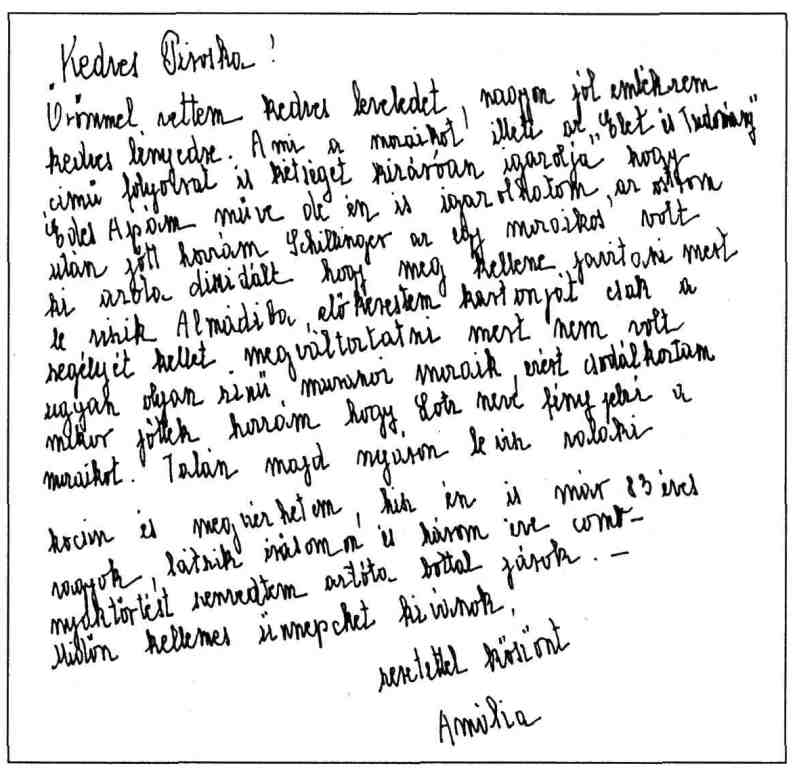 Kedves Piroska!
Örömmel vettem kedves leveledet, nagyon jól emlékszem
kedves lényedre. Ami a mozaikot illeti az "Élet és Tudomány"
című folyóirat is kétséget kizáróan igazolja hogy
Édes Apám műve de én is igazolhatom, az ostrom
után jött hozzám Schillinger az egy mozaikos volt
ki azóta disszidált hogy meg kellene javitani mert
le viszik Almádiba előkerestem kartonját csak a
segélyét kellet megváltoztatni mert nem volt
ugyan olyan szinű muranoi mozaik, ezért csodálkoztam
mikor jöttek hozzám hogy Lotz neve fényjelzi a
mozaikot. Talán majd nyáron le visz valaki
kocsin és megnézhetem, hisz én is már 83 éves
vagyok, látszik irásomon is három éve comb-
nyaktörtést szenvedtem aztóta bottal járok. —
Midőn kellemes ünnepeket kivánok,
szeretettel köszönt
Amália